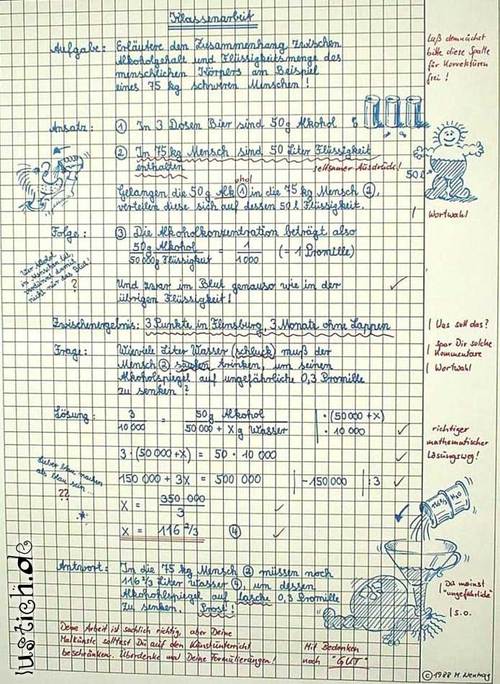 Klassenarbeit
Aufgabe: Erläutere den Zusammenhang zwischen
Alkoholgehalt und Flüssigkeitsmenge des
menschlichen Körpers am Beispiel
eines 75 kg schweren Menschen!
Laß demnächst
bitte diese Spalte
für Korrekturen
frei!
Ansatz: ① In 3 Dosen Bier sind 50g Alkohol
② In 75 kg Mensch sind 50 Liter Flüssigkeit
enthalten
seltsamer Ausdruck!
50 l
ohol
Gelangen die 50 g Alk ① in die 75 kg Mensch ②,
verteilen diese sich auf dessen 50 l Flüssigkeit.
| Wortwahl
Folge: ③ Die Alkoholkonzentration beträgt also
50g Alkohol / 50 000 g Flüssigkeit = 1 / 1 000 (= 1 Promille)
?
Und zwar im Blut genauso wie in der
übrigen Flüssigkeit!
Zwischenergebnis: 3 Punkte in Flensburg, 3 Monate ohne Lappen
| Was soll das?
Frage: Wieviele Liter Wasser (schluck) muß der
Mensch ② saufen trinken, um seinen
Alkoholspiegel auf ungefährliche 0,3 Promille
zu senken?
| spar Dir solche
Kommentare
| Wortwahl
Lösung: 3 / 10 000 = 50g Alkohol / 50 000 + X g Wasser | · (50 000 + X) | · 10 000
richtiger
mathematischer
Lösungsweg!
3 · (50 000 + X) = 50 · 10 000
150 000 + 3X = 500 000 | -150 000 | :3
X = 350 000 / 3
X = 116 ²/₃ ④
Lieber blau machen
als blau sein...
??
H₂O
Antwort: In die 75 kg Mensch ② müssen noch
116 ²/₃ Liter Wasser ④, um dessen
Alkoholspiegel auf lasche 0,3 Promille
zu senken. Prost!
Du meinst
"ungefährliche"
| s.o.
Deine Arbeit ist sachlich richtig, aber Deine
Malkünste solltest Du auf den Kunstunterricht
beschränken. Überdenke mal Deine Formulierungen!
Mit Bedenken
noch "GUT"
lustich.de